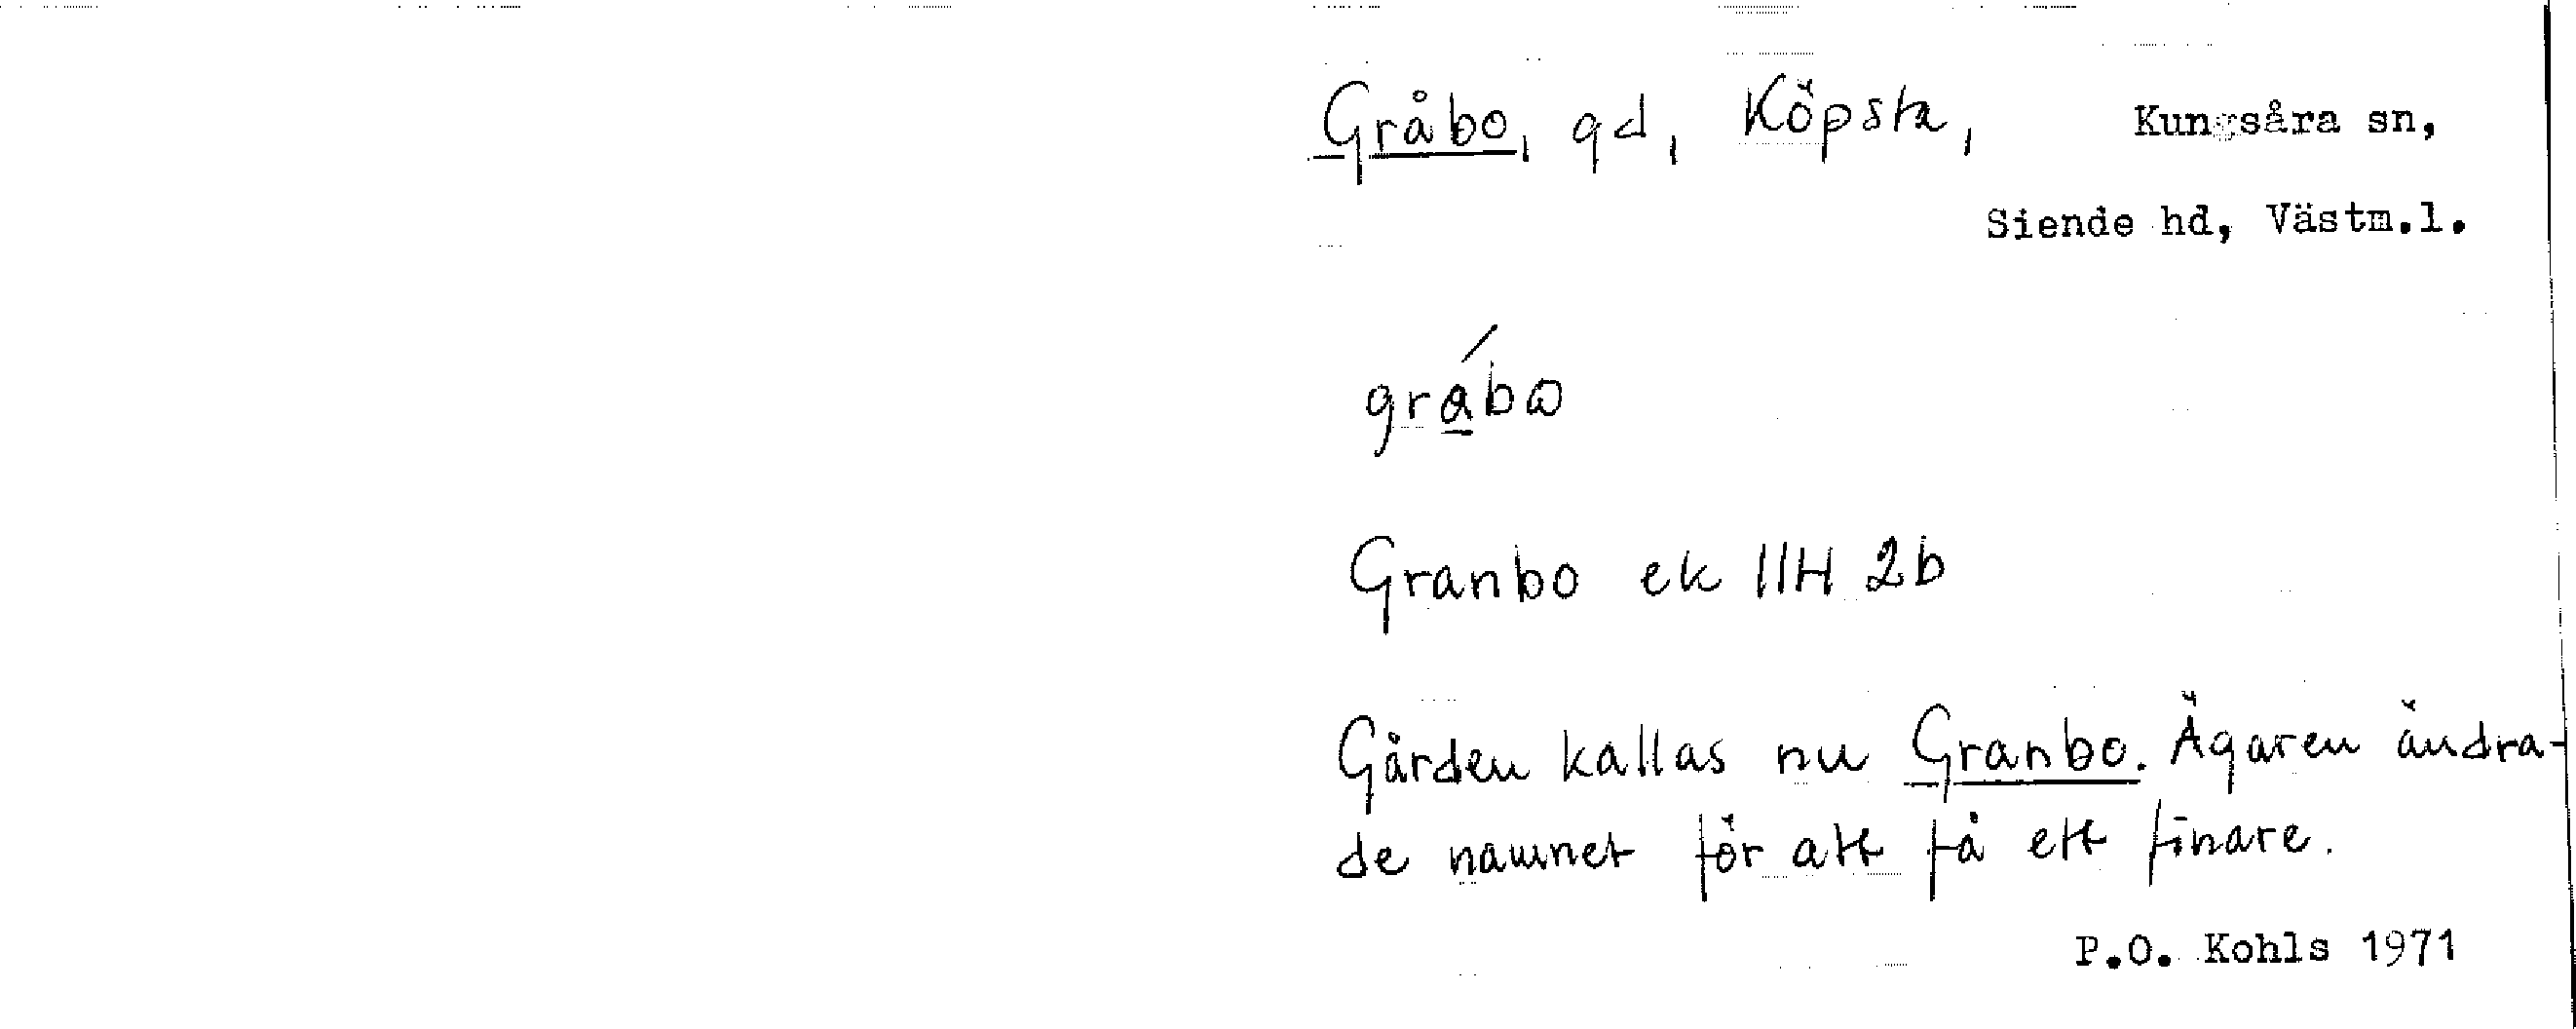 Gråbo, gd, Köpsta, Kungsåra sn,
Siende hd, Västm.l.
gråbo
Granbo ek 11H 2b
Gården kallas nu Granbo. Ägaren ändra-
de namnet för att få ett finare.
P.O. Kohls 1971